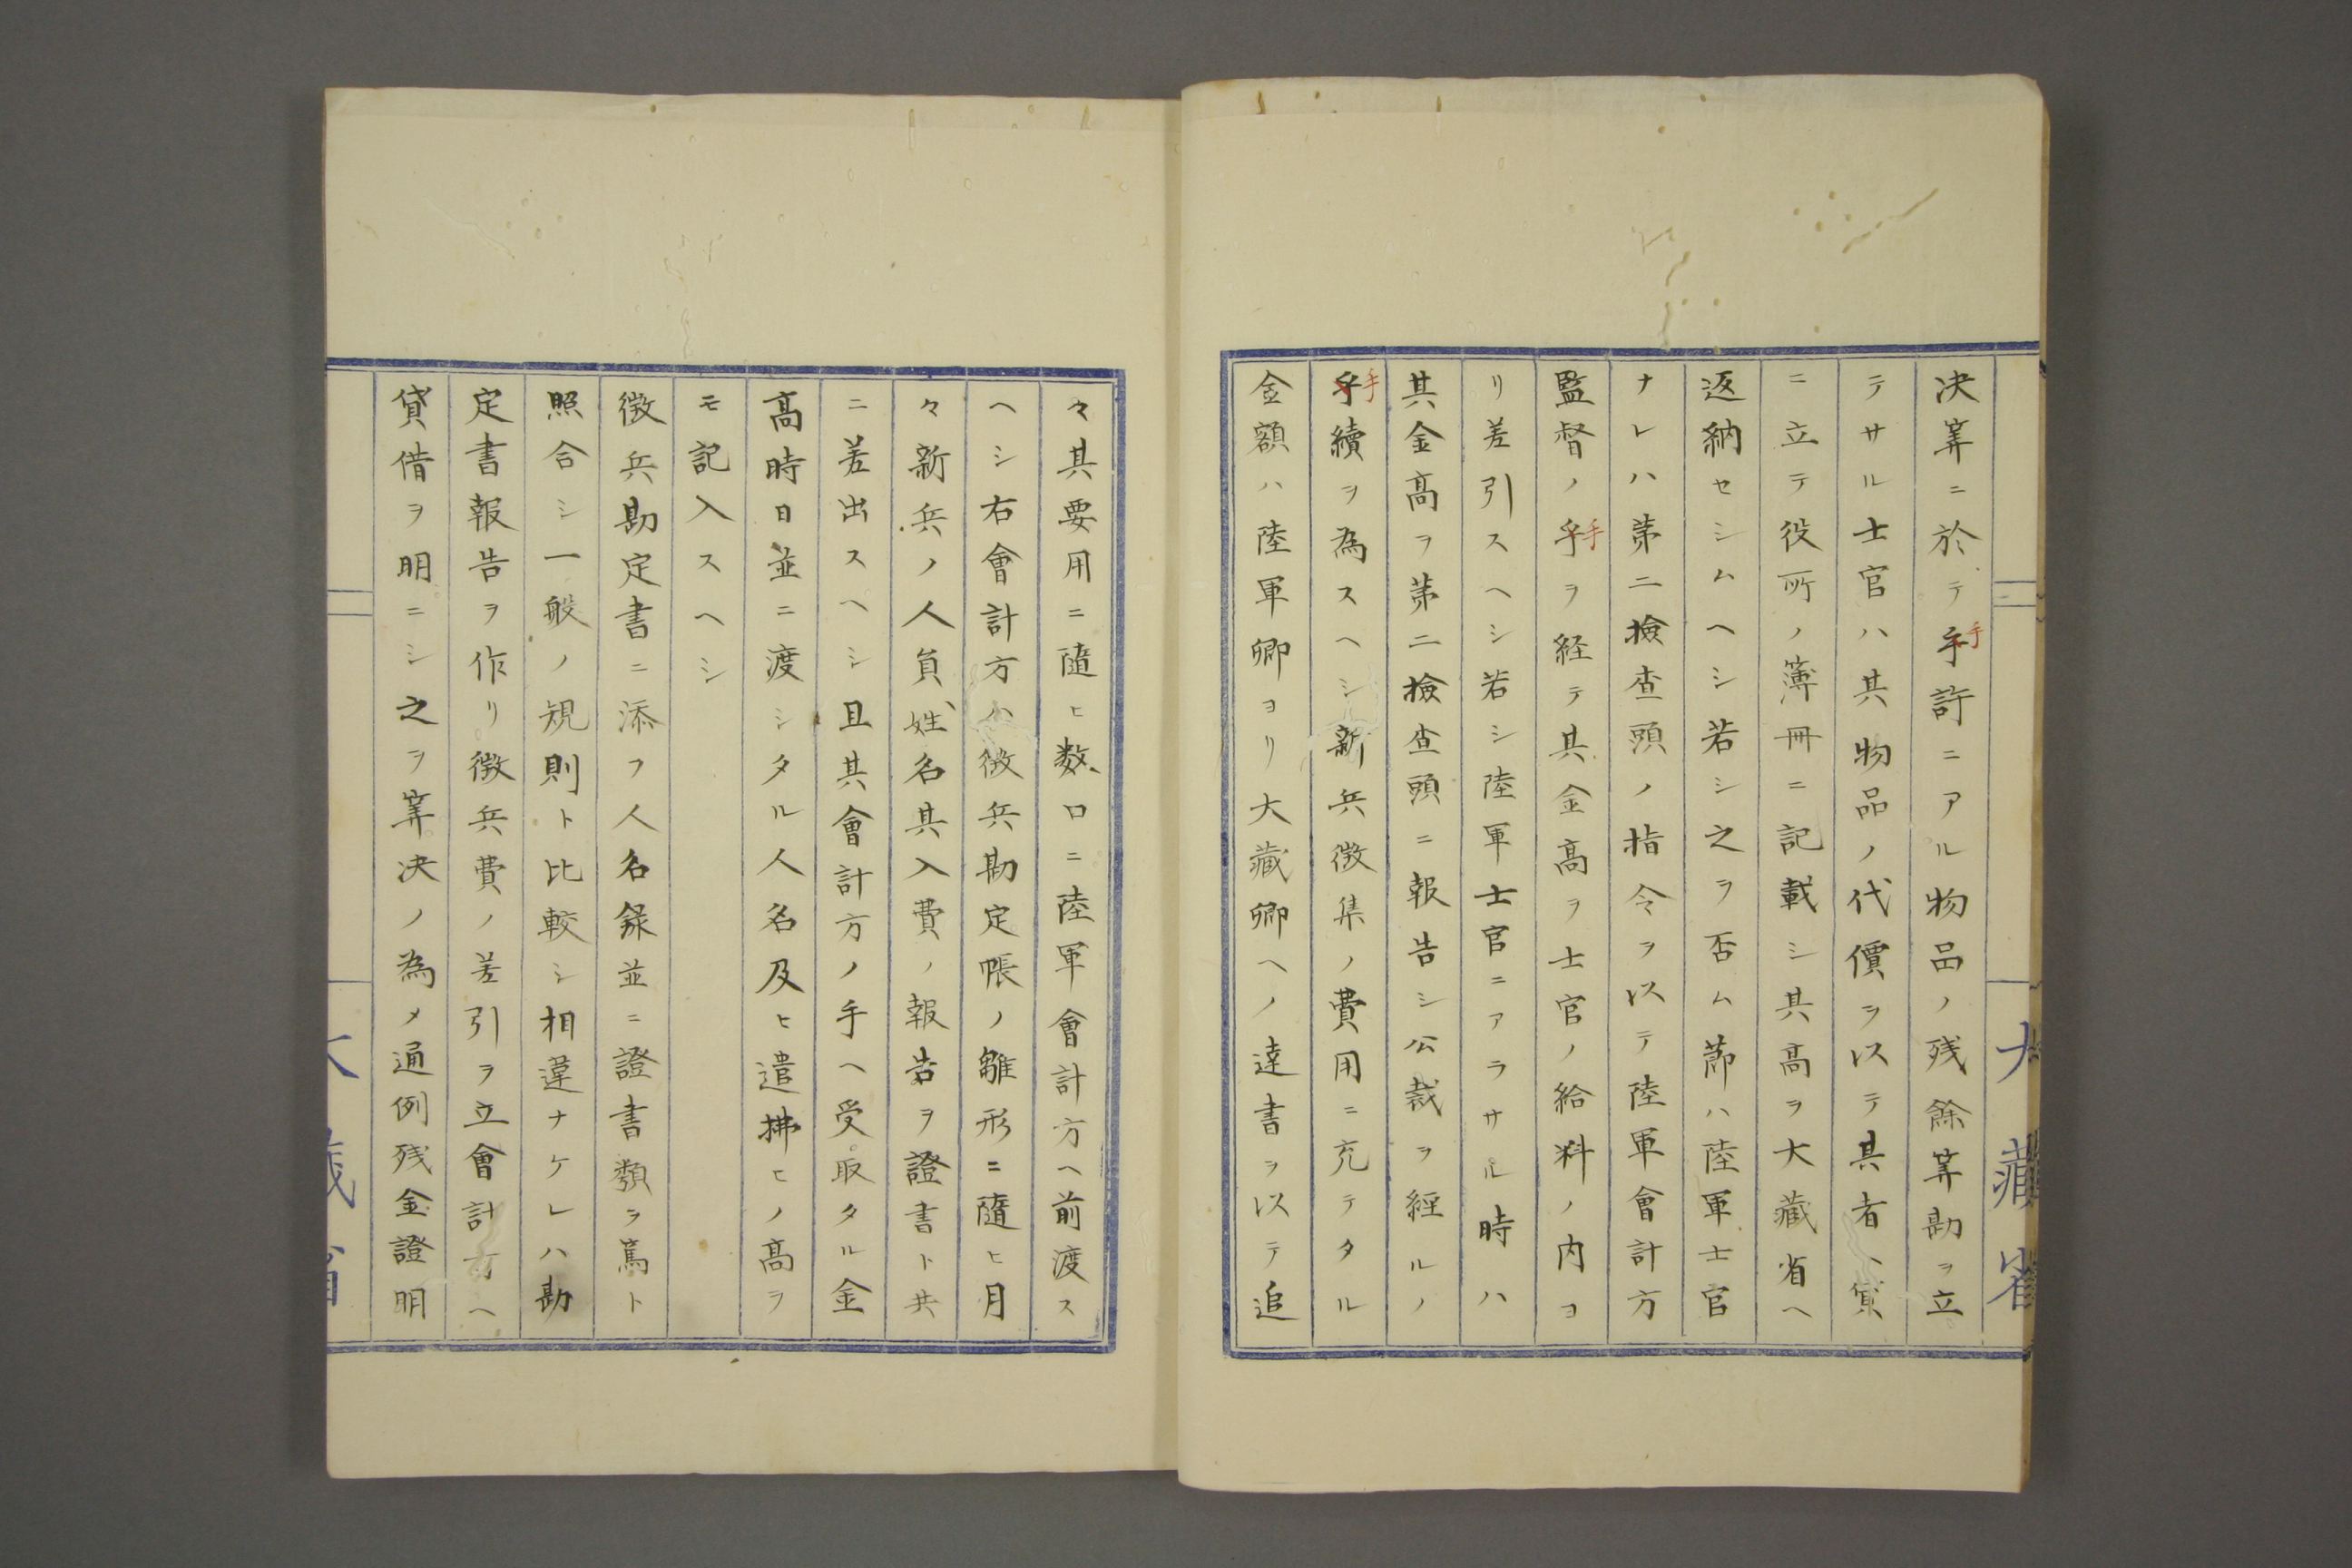 大藏省
決筭ニ於テ手許ニアル物品ノ残餘筭勘ヲ立
テサル士官ハ其物品ノ代價ヲ以テ其者ヘ貸
ニ立テ役所ノ簿冊ニ記載シ其高ヲ大藏省ヘ
返納セシムヘシ若シ之ヲ否ム節ハ陸軍士官
ナレハ第二撿查頭ノ指令ヲ以テ陸軍會計方
監督ノ手ヲ経テ其金高ヲ士官ノ給料ノ内ヨ
リ差引スヘシ若シ陸軍士官ニアラサル時ハ
其金高ヲ第二撿查頭ニ報告シ公裁ヲ經ルノ
手續ヲ為スヘシ新兵徴集ノ費用ニ充テタル
金額ハ陸軍卿ヨリ大藏卿ヘノ達書ヲ以テ追
々其要用ニ隨ヒ数口ニ陸軍會計方ヘ前渡ス
ヘシ右會計方ハ徴兵勘定帳ノ雛形ニ隨ヒ月
々新兵ノ人員姓名其入費ノ報告ヲ證書ト共
ニ差出スヘシ且其會計方ノ手ヘ受取タル金
高時日並ニ渡シタル人名及ヒ遣拂ヒノ高ヲ
モ記入スヘシ
徴兵勘定書ニ添フ人名錄並ニ證書類ヲ篤ト
照合シ一般ノ規則ト比較シ相違ナケレハ勘
定書報告ヲ作リ徴兵費ノ差引ヲ立會計方ヘ
貸借ヲ明ニシ之ヲ筭決ノ為メ通例残金證明